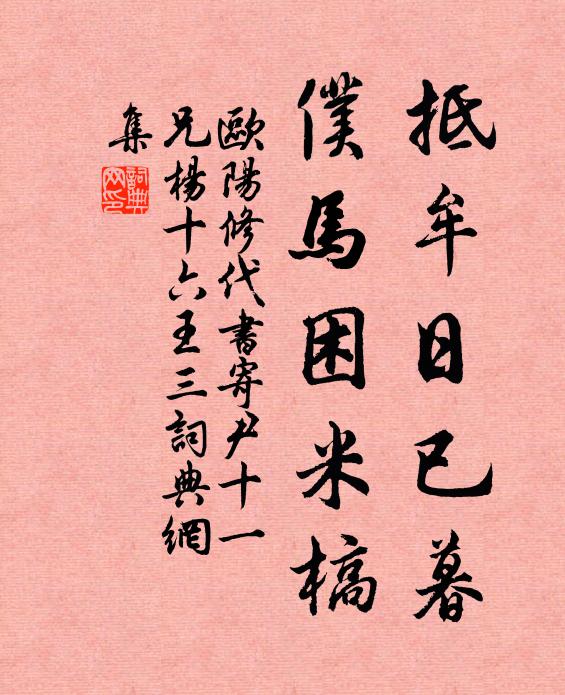 抵牟日已暮
僕馬困米槁
歐陽修代書寄尹十一
兄楊十六王三詞典網
集
詞典
网印